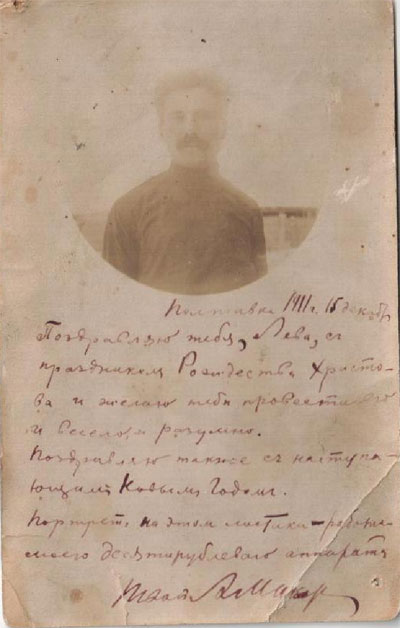 Полтавка 1911 г. 15 декабр.
Поздравляю тебя, Лева, съ
праздникомъ Рождества Христо-
ва и желаю тебѣ провести его
и весело и разумно.
Поздравляю также съ наступа-
ющимъ Новымъ Годомъ.
Портретъ на этом листикѣ – работа
моего десятирублеваго аппарата
Твой